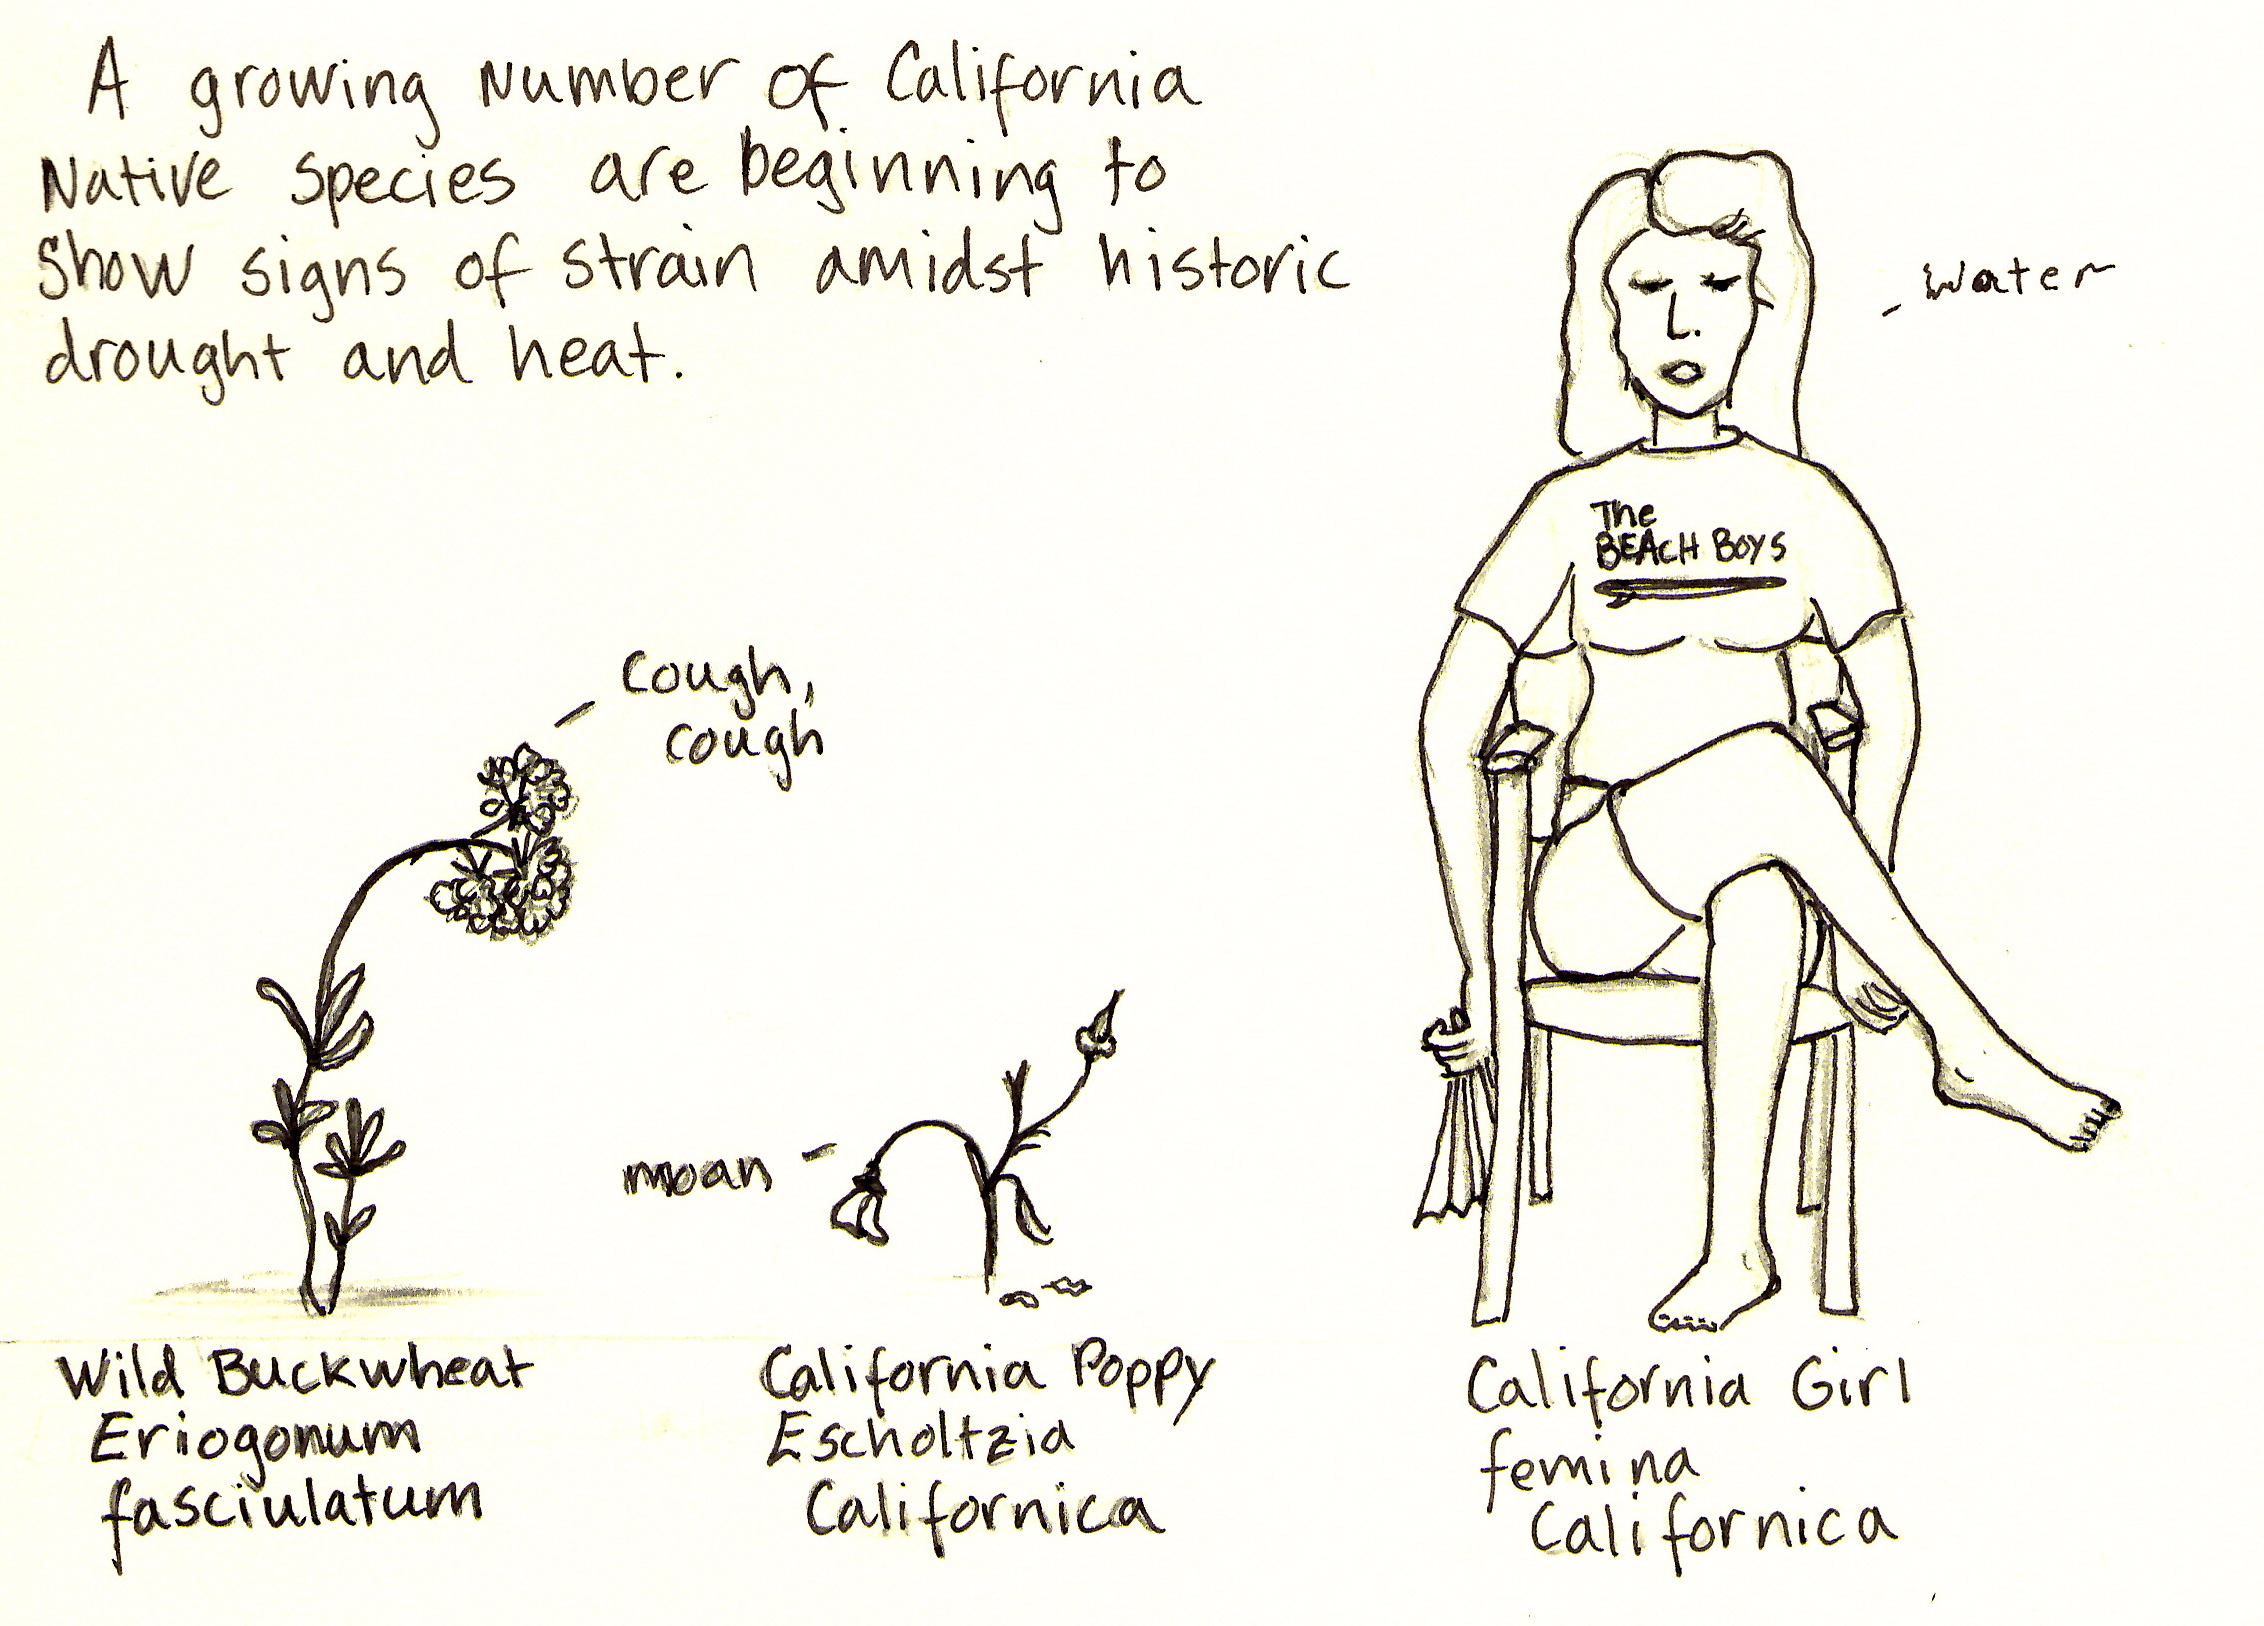 A growing number of California
Native species are beginning to
Show signs of strain amidst historic
drought and heat.
water
The
BEACH BOYS
Cough,
cough
moan
Wild Buckwheat
Eriogonum
fasciulatum
California Poppy
Escholtzia
Californica
California Girl
femina
Californica